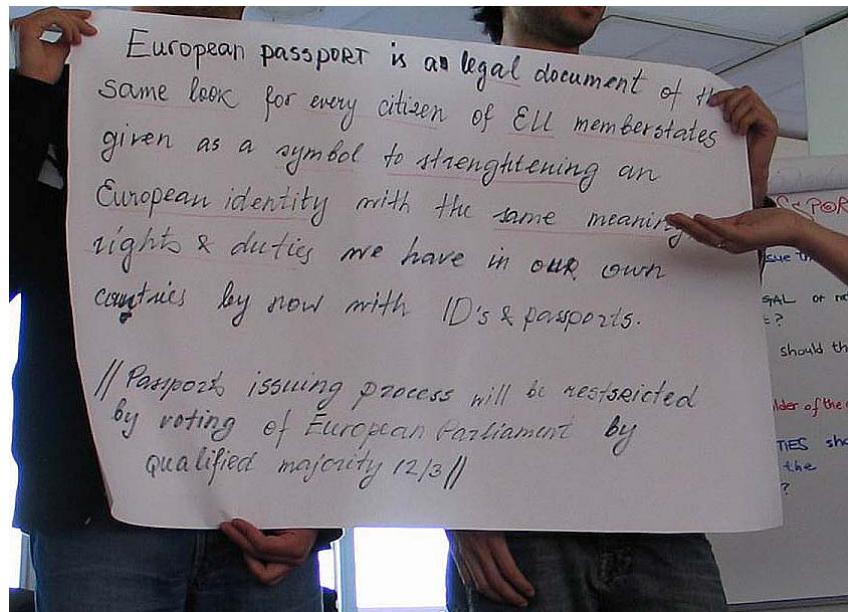 European passport is an legal document of th
same look for every citizen of EU memberstates
given as a symbol to strenghtening an
European identity with the same meaning
rights & duties we have in our own
countries by now with ID's & passports.
// Passports issuing process will be restsricted
by voting of European Parliament by
qualified majority 12/3 //
SSPOR
sue th
GAL or no
?
should th
lder of the
TIES sho
the
?